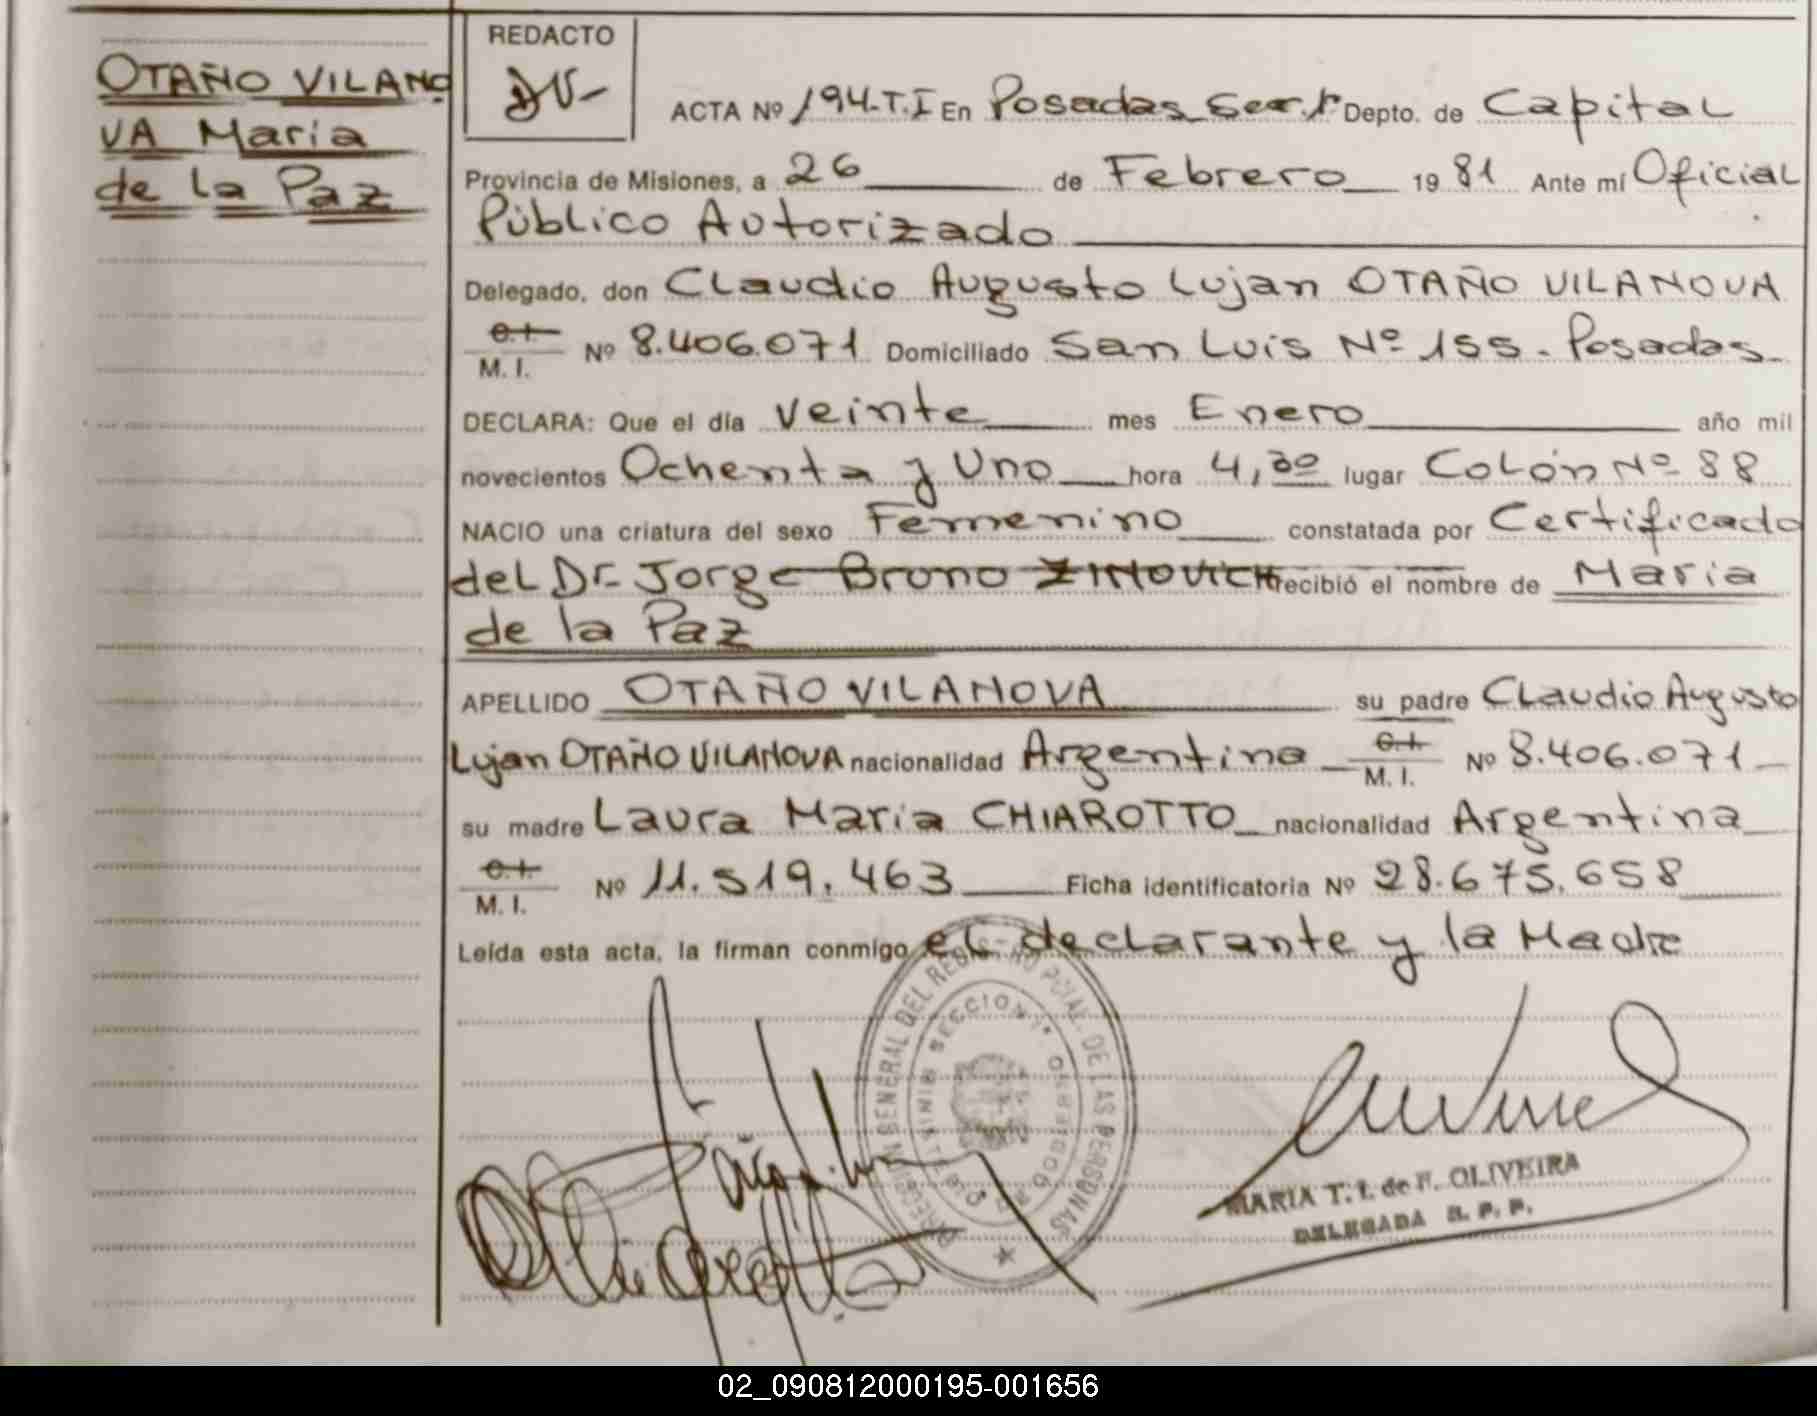 OTAÑO VILANO
VA Maria
de la Paz
REDACTO
ACTA Nº 194-T.I En Posadas Secc. 1ª Depto. de Capital
Provincia de Misiones, a 26 de Febrero 1981 Ante mí Oficial
Público Autorizado
Delegado, don Claudio Augusto Lujan OTAÑO VILANOVA
C.I.
M. I. Nº 8.406.071 Domiciliado San Luis Nº 155. Posadas.
DECLARA: Que el día veinte mes Enero año mil
novecientos Ochenta y Uno hora 4,30 lugar Colón Nº 88
NACIO una criatura del sexo Femenino constatada por Certificado
del Dr. Jorge Bruno ZINOVICH recibió el nombre de Maria
de la Paz
APELLIDO OTAÑO VILANOVA su padre Claudio Augusto
Lujan OTAÑO VILANOVA nacionalidad Argentina C.I. M. I. Nº 8.406.071
su madre Laura Maria CHIAROTTO nacionalidad Argentina
C.I.
M. I. Nº 11.519.463 Ficha identificatoria Nº 28.675.658
Leída esta acta, la firman conmigo el declarante y la Madre
DIRECCION GENERAL DEL REGISTRO PCIAL. DE LAS PERSONAS
SECCION 1ª
MARIA T. I. de F. OLIVEIRA
DELEGADA R. P. P.
02_090812000195-001656